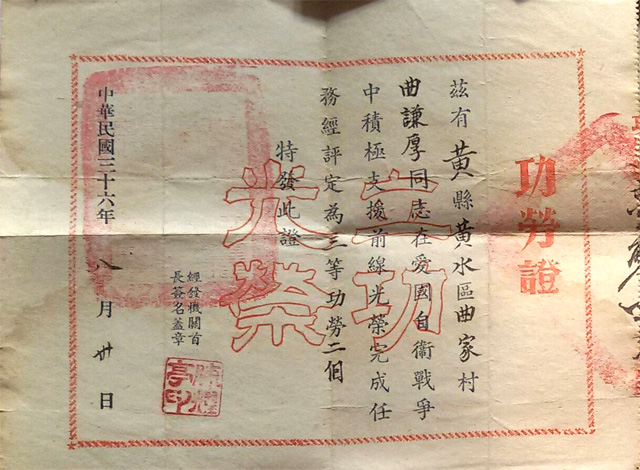 功勞證
茲有黃縣黃水區曲家村
曲謙厚同志在愛國自衞戰爭
中積極支援前線光榮完成任
務經評定為三等功勞二佰
特發此證
立功
光榮
經發機關首
長簽名蓋章
中華民國三十六年八月廿日